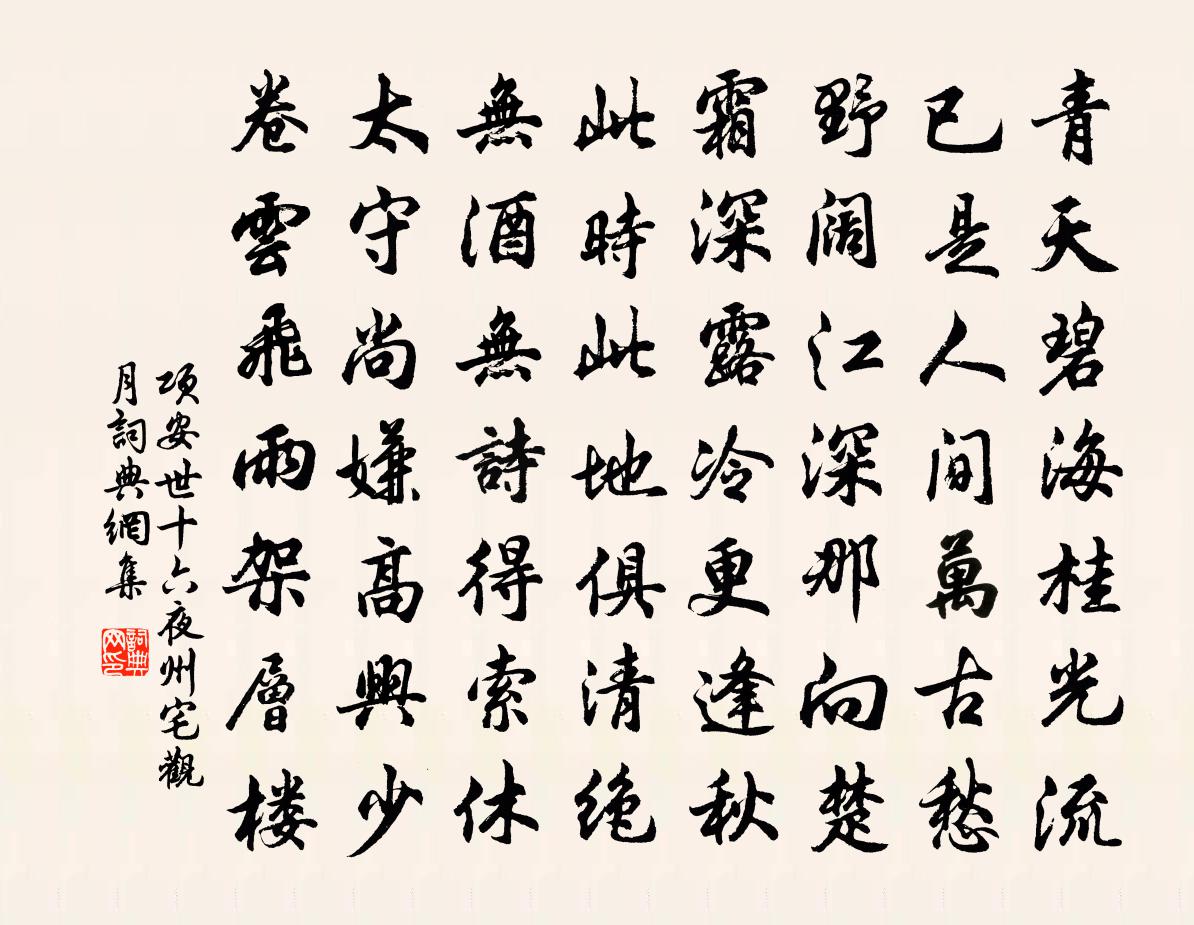 青天碧海桂光流
已是人间萬古愁
野阔江深那向楚
霜深露冷更逢秋
此時此地俱清绝
無酒無詩得索休
太守尚嫌高興少
卷雲飛雨架層楼
项安世十六夜州宅觀
月詞典網集
詞典网印